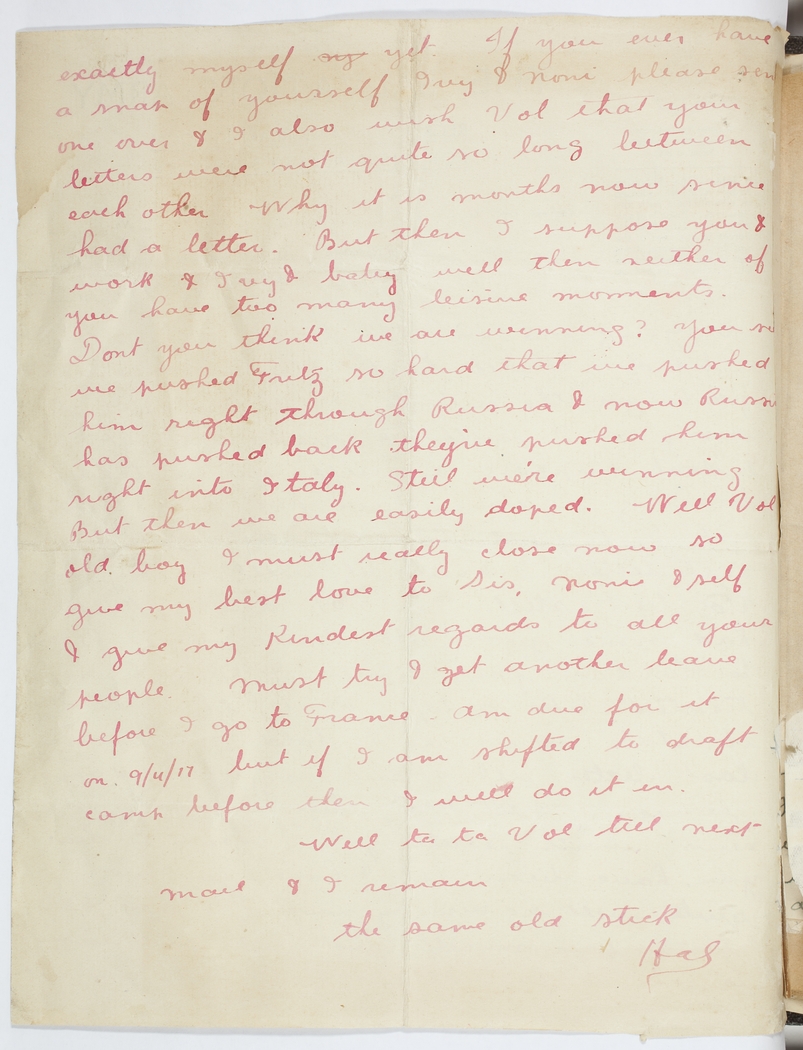 exactly myself ny yet. If you ever have
a snap of yourself Ivy & noni please sen
one over & I also wish Vol that your
letters were not quite so long between
each other Why it is months now since
had a letter. But then I suppose you &
work & Ivy & baby well then neither of
you have too many leisure moments.
Dont you think we are winning? You se
we pushed Fritz so hard that we pushed
him right through Russia & now Russi
has pushed back they've pushed him
right into Italy. Still we're winning
But then we are easily doped. Well Vol
old. boy I must really close now so
give my best love to Sis, noni & self
& give my Kindest regards to all your
people. Must try & get another leave
before I go to France - am due for it
on. 9/11/17 but if I am shifted to draft
camp before then I will do it in.
Well ta ta Vol till next
mail & I remain
the same old stick
Hal